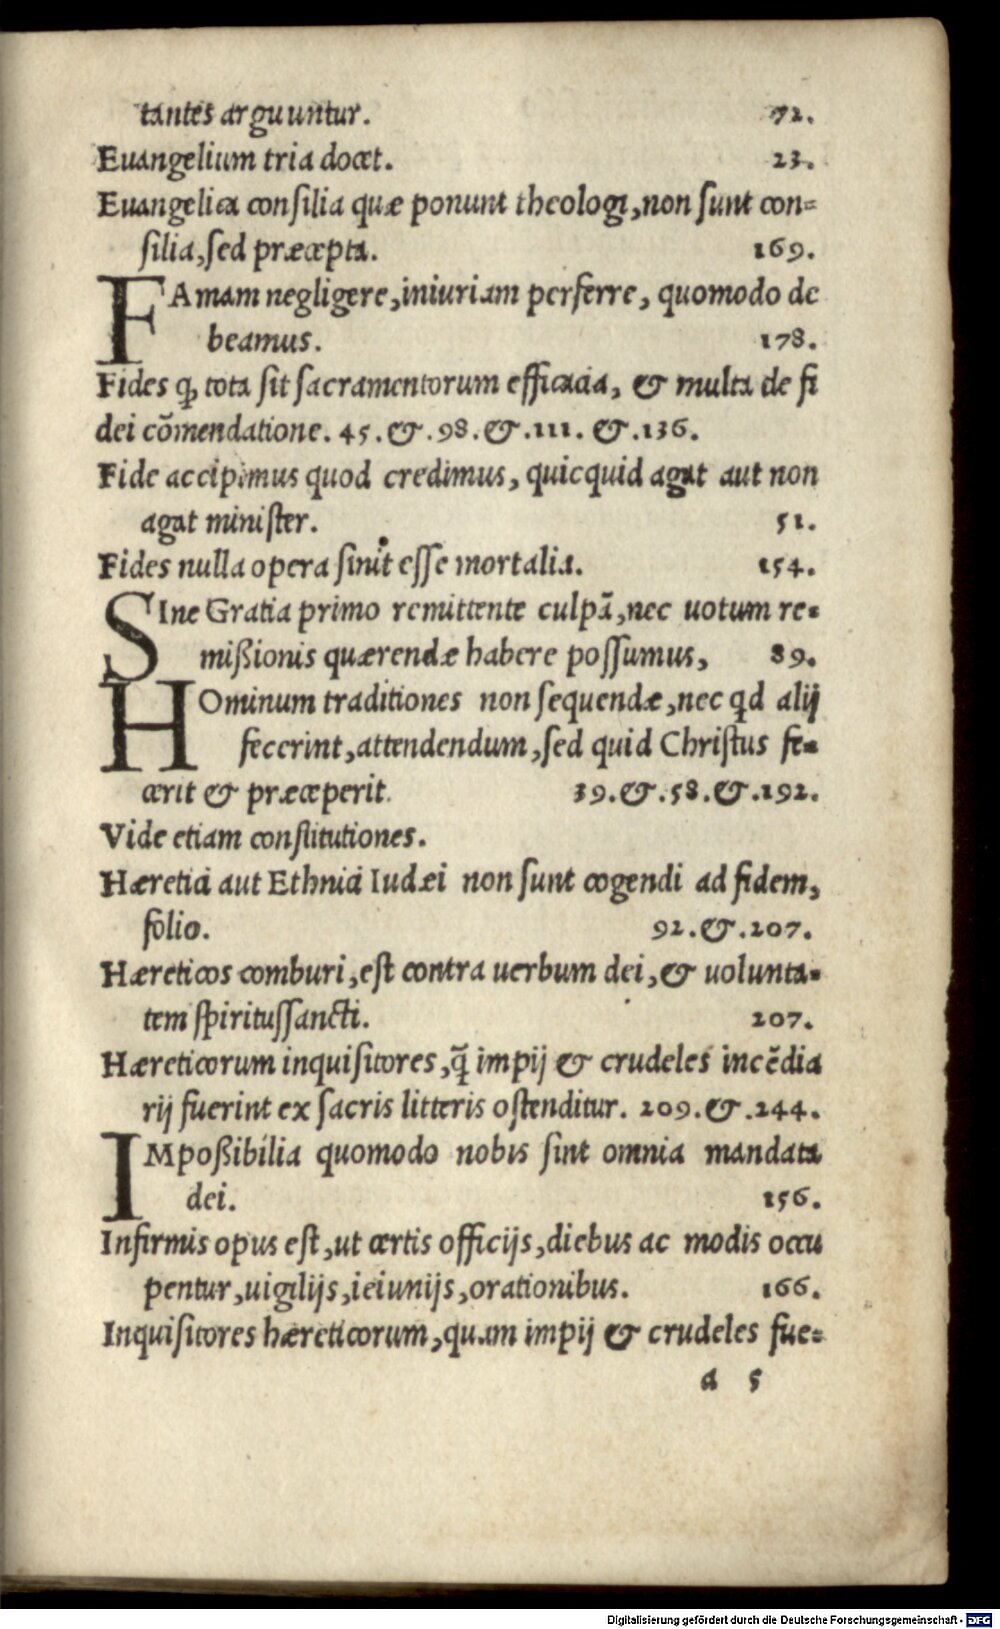 tantes arguuntur. 72.
Euangelium tria docet. 23.
Euangelica consilia quæ ponunt theologi, non sunt con=
silia, sed præcepta. 169.
FAmam negligere, iniuriam perferre, quomodo de
beamus. 178.
Fides qꝫ tota sit sacramentorum efficacia, & multa de fi
dei cōmendatione. 45. &. 98. &. 111. &. 136.
Fide accipimus quod credimus, quicquid agat aut non
agat minister. 51.
Fides nulla opera sinit esse mortalia. 154.
SIne Gratia primo remittente culpā, nec uotum re=
mißionis quærendæ habere possumus, 89.
HOminum traditiones non sequendæ, nec qd alij
fecerint, attendendum, sed quid Christus fe=
cerit & præceperit. 39. &. 58. &. 192.
Vide etiam constitutiones.
Hæretici aut Ethnici Iudæi non sunt cogendi ad fidem,
folio. 92. &. 207.
Hæreticos comburi, est contra uerbum dei, & uolunta=
tem spiritussancti. 207.
Hæreticorum inquisitores, q̄ impij & crudeles incēdia
rij fuerint ex sacris litteris ostenditur. 209. &. 244.
IMpoßibilia quomodo nobis sint omnia mandata
dei. 156.
Infirmis opus est, ut certis officijs, diebus ac modis occu
pentur, uigilijs, ieiunijs, orationibus. 166.
Inquisitores hæreticorum, quam impij & crudeles fue=
a 5
Digitalisierung gefördert durch die Deutsche Forschungsgemeinschaft - DFG